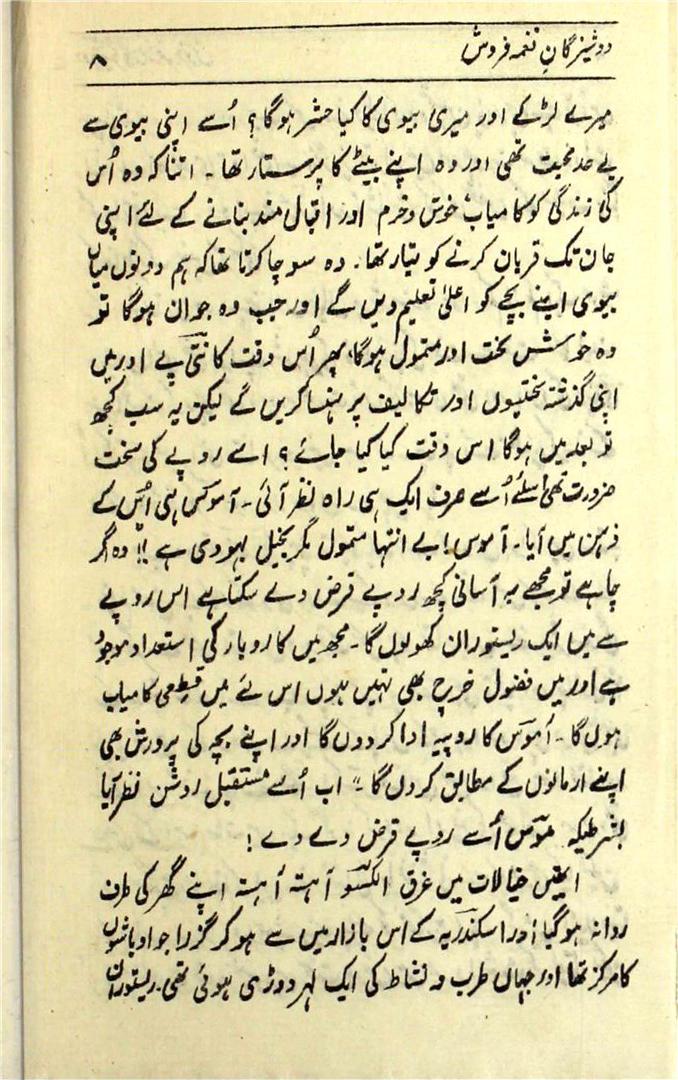 دوشیزگانِ نغمہ فروش
۸
میرے لڑکے اور میری بیوی کا کیا حشر ہوگا؟ اُسے اپنی بیوی سے
بے حد محبت تھی اور وہ اپنے بیٹے کا پرستار تھا۔ اتنا کہ وہ اُس
کی زندگی کو کامیاب خوش و خرم اور اقبال مند بنانے کے لئے اپنی
جان تک قربان کرنے کو تیار تھا۔ وہ سوچا کرتا تھا کہ ہم دونوں میاں
بیوی اپنے بچے کو اعلیٰ تعلیم دیں گے اور جب وہ جوان ہوگا تو
وہ خوش بخت اور متمول ہوگا، پھر اُس وقت کانتی پے اور میں
اپنی گذشتہ سختیوں اور تکالیف پر ہنسا کریں گے لیکن یہ سب کچھ
تو بعد میں ہوگا اس وقت کیا کیا جائے؟ اسے روپے کی سخت
ضرورت تھی اسلئے اُسے صرف ایک ہی راہ نظر آئی۔ آموس ہی اُس کے
ذہن میں آیا۔ آموس! بے انتہا متمول مگر بخیل یہودی ہے!! وہ گر
چاہے تو مجھے بہ آسانی کچھ روپے قرض دے سکتا ہے اس روپے
سے میں ایک ریستوران کھولوں گا۔ مجھ میں کاروبار کی استعداد موجود
ہے اور میں فضول خرچ بھی نہیں ہوں اس لئے میں قطعی کامیاب
ہوں گا۔ آموس کا روپیہ ادا کر دوں گا اور اپنے بچہ کی پرورش بھی
اپنے ارمانوں کے مطابق کروں گا" اب اُسے مستقبل روشن نظر آیا
بشرطیکہ موس اُسے روپے قرض دے دے!
انہیں خیالات میں غرق الکسو آہستہ آہستہ اپنے گھر کی طرف
روانہ ہو گیا اور اسکندریہ کے اس بازار میں سے ہو کر گزرا جو اوباشوں
کا مرکز تھا اور جہاں طرب و نشاط کی ایک لہر دوڑی ہوئی تھی۔ ریستوران